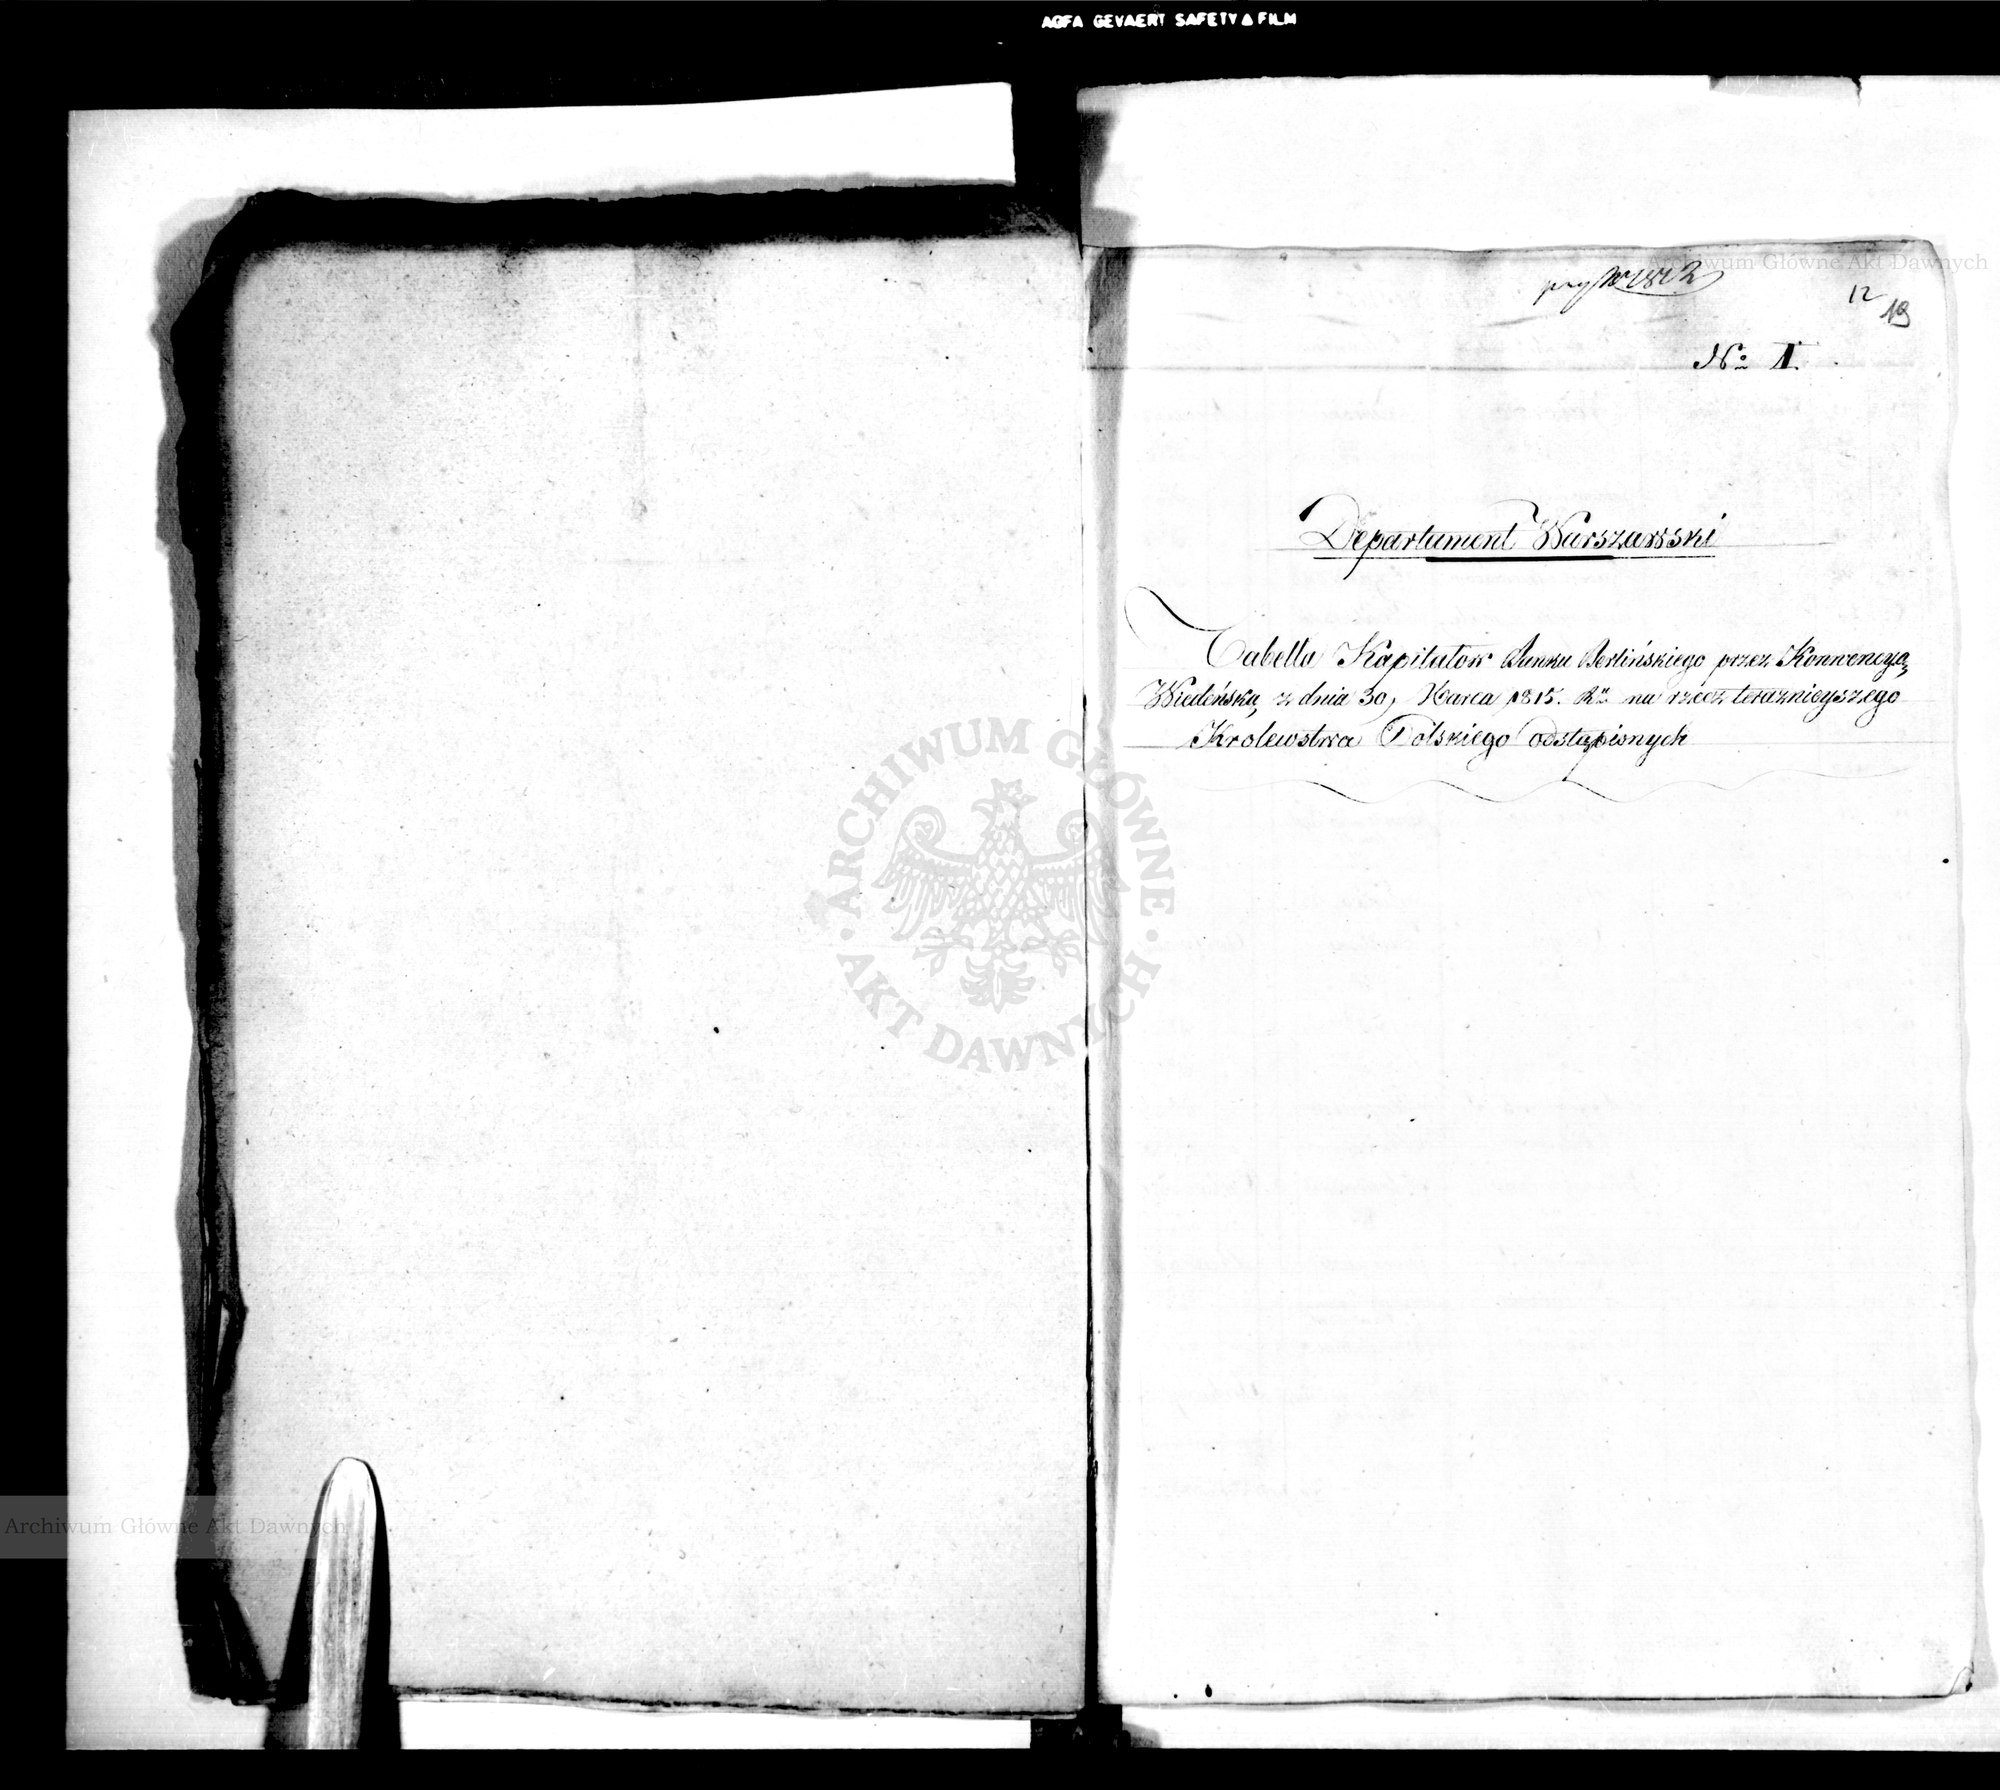 AGFA GEVAERT SAFETY FILM
Archiwum Główne Akt Dawnych
12
19
№ 1.
Departament Warszawski
Tabella Kapitałow Banku Berlińskiego przez Konwencyą
Wiedeńską z dnia 30, Marca 1815. R. na rzecz teraznieyszego
Krolewstwa Polskiego odstąpionych
ARCHIWUM GŁÓWNE
AKT DAWNYCH
Archiwum Główne Akt Dawnych